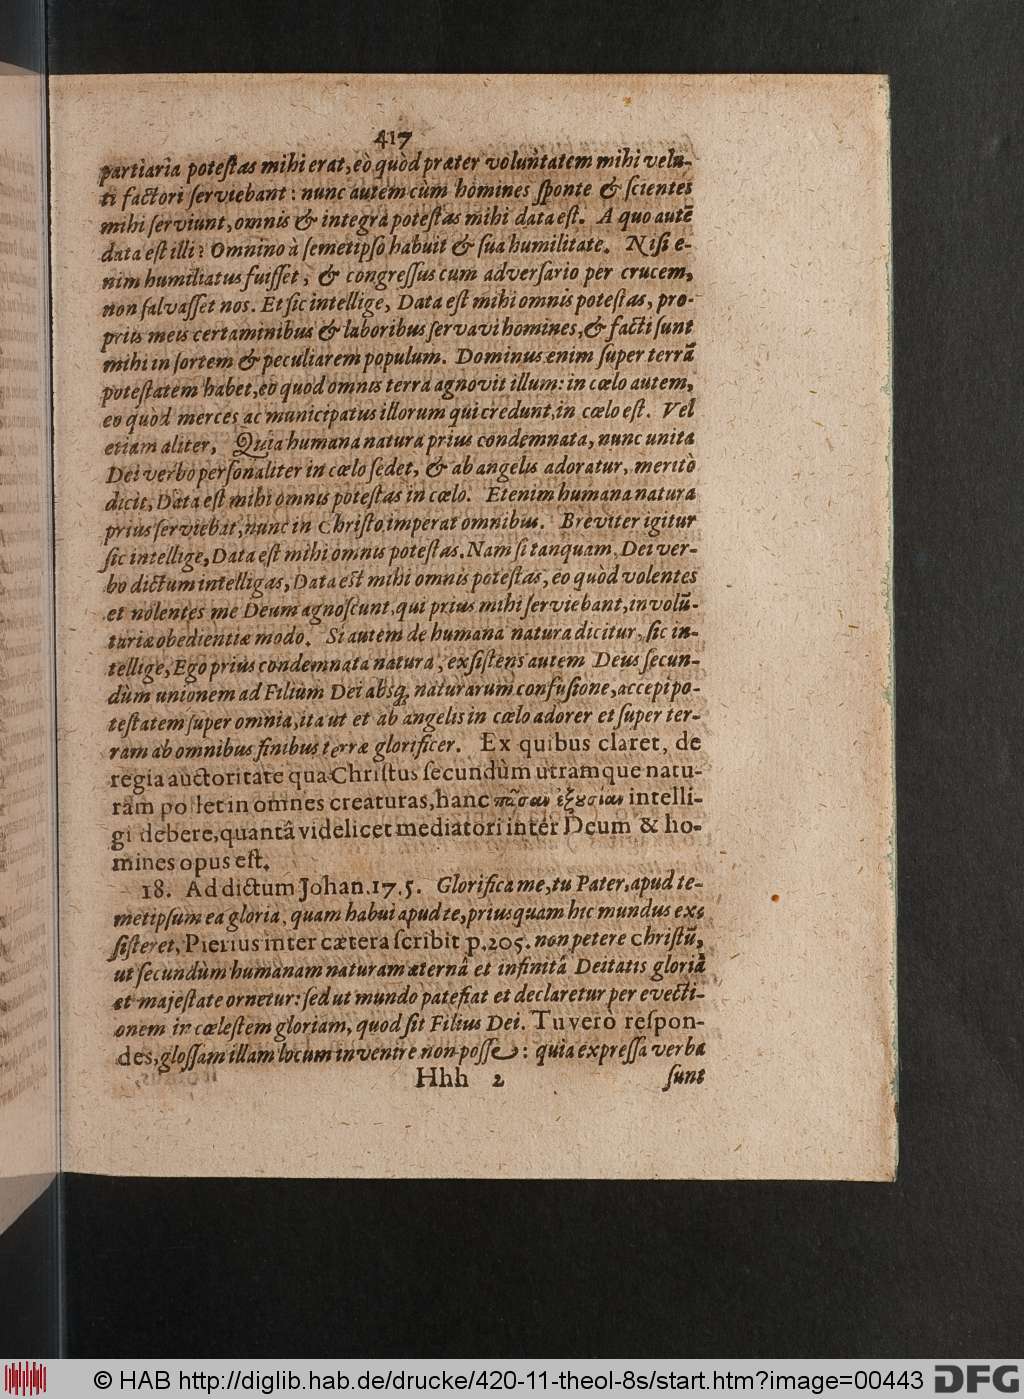 417
partiaria poteſtas mihi erat, eò quòd præter voluntatem mihi velu-
ti factori ſerviebant: nunc autem cùm homines ſponte & ſcientes
mihi ſerviunt, omnis & integra poteſtas mihi data eſt. A quo autē
data eſt illi? Omnino à ſemetipſo habuit & ſua humilitate. Niſi e-
nim humiliatus fuiſſet, & congreſſus cum adverſario per crucem,
non ſalvaſſet nos. Et ſic intellige, Data eſt mihi omnis poteſtas, pro-
priis meis certaminibus & laboribus ſervavi homines, & facti ſunt
mihi in ſortem & peculiarem populum. Dominus enim ſuper terrā
poteſtatem habet, eo quod omnis terra agnovit illum: in cœlo autem,
eo quòd merces ac municipatus illorum qui credunt, in cœlo eſt. Vel
etiam aliter, Quia humana natura prius condemnata, nunc unita
Dei verbo perſonaliter in cœlo ſedet, & ab angelis adoratur, meritò
dicit, Data eſt mihi omnis poteſtas in cœlo. Etenim humana natura
prius ſerviebat, nunc in Chriſto imperat omnibus. Breviter igitur
ſic intellige, Data eſt mihi omnis poteſtas. Nam ſi tanquam Dei ver-
bo dictum intelligas, Data eſt mihi omnis poteſtas, eo quòd volentes
et nolentes me Deum agnoſcunt, qui prius mihi ſerviebant, involū-
tariæ obedientiæ modo. Si autem de humana natura dicitur, ſic in-
tellige, Ego prius condemnata natura, exſiſtens autem Deus ſecun-
dùm unionem ad Filium Dei absq, naturarum confuſione, accepi po-
teſtatem ſuper omnia, ita ut et ab angelis in cœlo adorer et ſuper ter-
ram ab omnibus finibus terræ glorificer. Ex quibus claret, de
regia auctoritate qua Chriſtus ſecundùm utramque natu-
ram pollet in omnes creaturas, hanc πᾶσαν ἐξουσίαν intelli-
gi debere, quantâ videlicet mediatori inter Deum & ho-
mines opus eſt.
18. Ad dictum Johan. 17. 5. Glorifica me, tu Pater, apud te-
metipſum ea gloria, quam habui apud te, priusquam hic mundus ex-
ſiſteret, Pierius inter cætera ſcribit p. 205. non petere Chriſtū,
ut ſecundùm humanam naturam æternâ et infinitâ Deitatis gloriâ
et majeſtate ornetur: ſed ut mundo patefiat et declaretur per evecti-
onem in cœleſtem gloriam, quod ſit Filius Dei. Tu verò reſpon-
des, gloſſam illam locum invenire non poſſe: quia expreſſa verba
Hhh 2 ſunt
© HAB http://diglib.hab.de/drucke/420-11-theol-8s/start.htm?image=00443 DFG